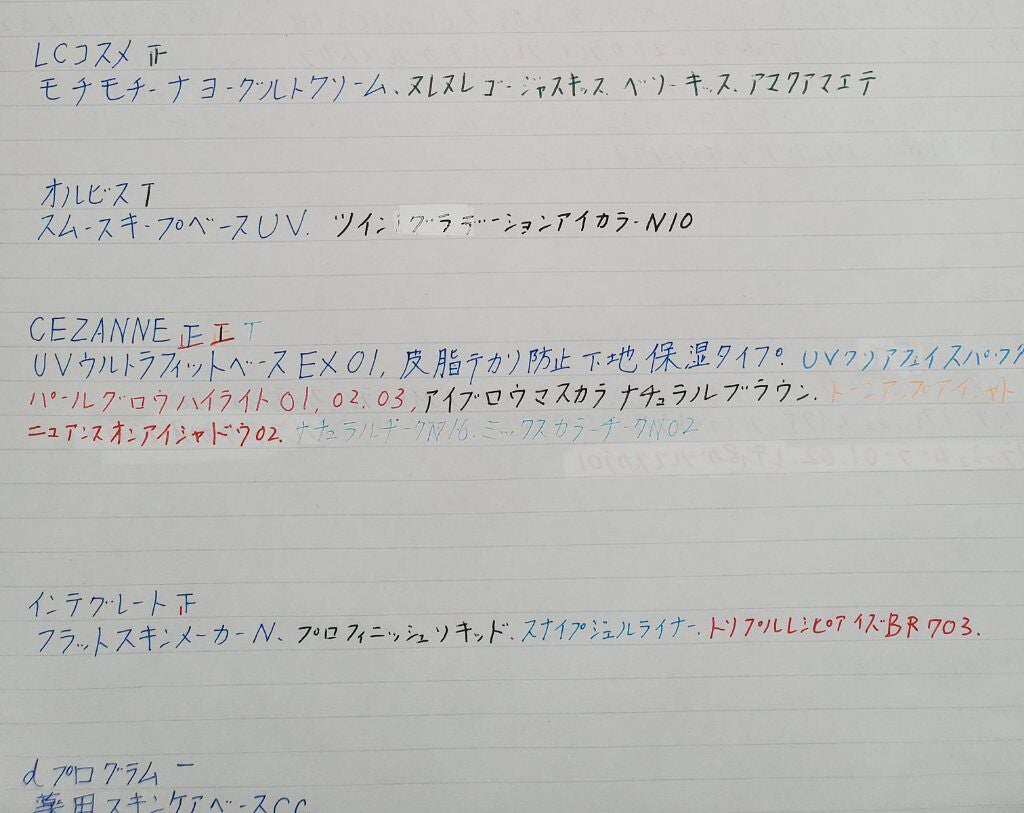 LCコスメ 正
モチモチーナヨーグルトクリーム、ヌレヌレゴージャスキッス、ベリーキッス、アマクアマエテ
オルビス T
スムースキープベースUV. ツイングラデーションアイカラーN10
CEZANNE 正 正 T
UVウルトラフィットベースEX01, 皮脂テカリ防止下地保湿タイプ. UVクリアフェイスパウダ
パールグロウハイライト01, 02, 03, アイブロウマスカラナチュラルブラウン. トーンアップアイシャド
ニュアンスオンアイシャドウ02. ナチュラルチークN16. ミックスカラーチークN02
インテグレート 正
フラットスキンメーカーN、プロフィニッシュリキッド. スナイプジェルライナー. トリプルレシピアイズBR703.
dプログラム 一
薬用スキンケアベースCC